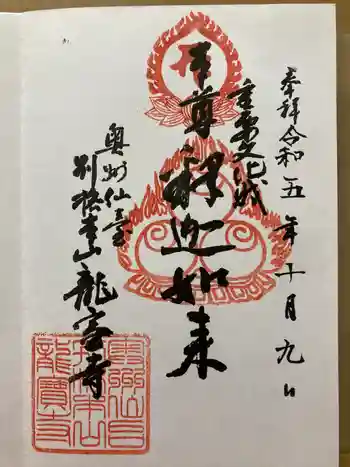 奉拝令和五年十月九日
重要文化財
本尊釋迦如来
奥州仙臺
別格本山龍寳寺
奥州仙台
別格本山
龍寶寺